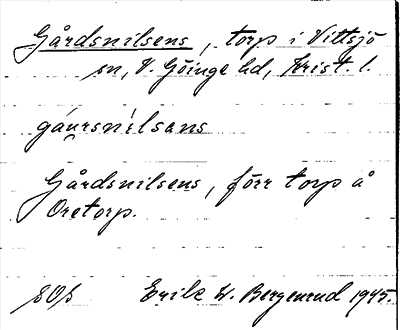 Gårdsnilsens, torp i Vittsjö
sn, V. Göinge hd, Krist. l.
gáu̯rsnilsans
Gårdsnilsens, förr torp å
Oretorp.
SOS Erik W. Bergenrud 1945.